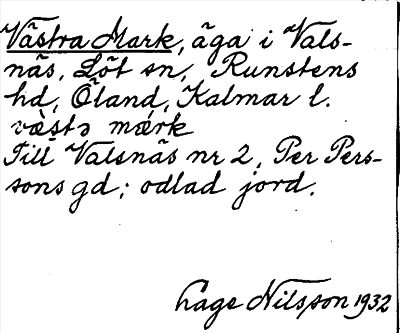 Västra Mark, äga i Vals-
näs, Löt sn, Runstens
hd, Öland, Kalmar l.
væ̀stə mærk
Till Valsnäs nr 2, Per Pers-
sons gd; odlad jord.
Lage Nilsson 1932